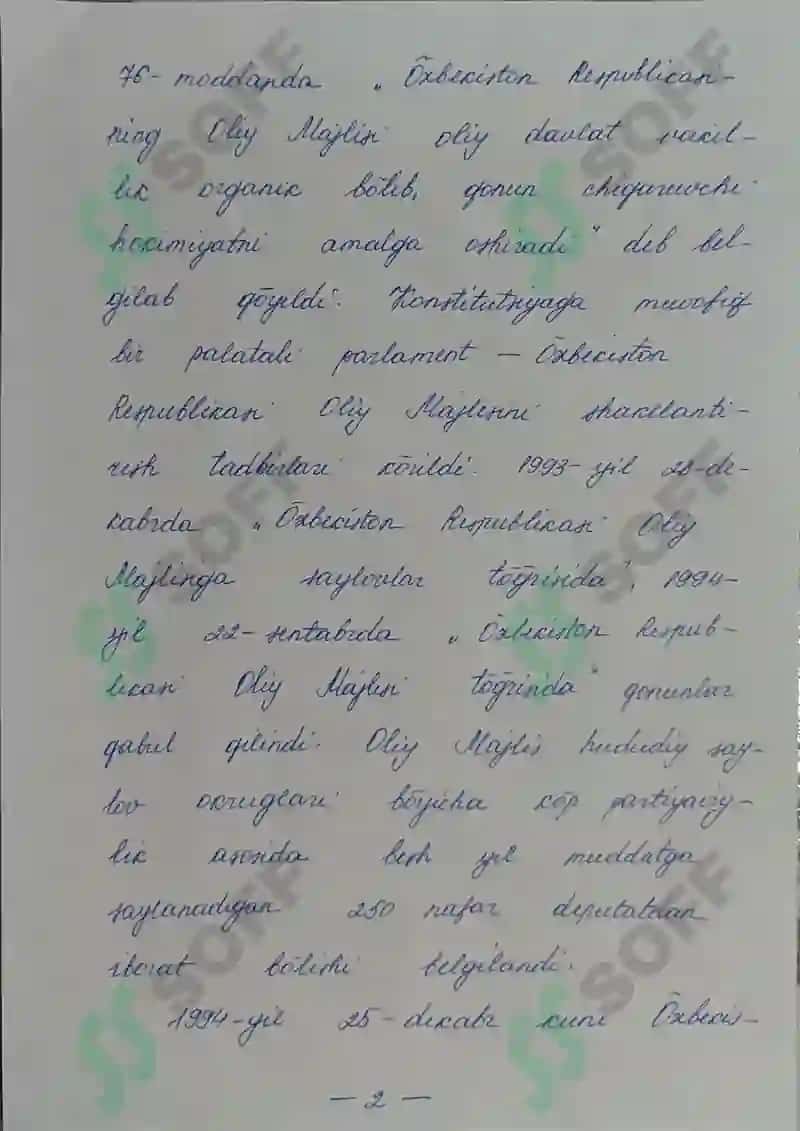 76-moddanda „Õzbekiston Respublikasi-
ning Oliy Majlisi oliy davlat vakil-
lik organik bõlib, qonun chiqaruvchi
hokimiyatni amalga oshiradi" deb bel-
gilab qõyildi. Konstitutsiyaga muvofiq
bir palatali parlament — Õzbekiston
Respublikasi Oliy Majlisini shakllanti-
rish tadbirlari kõrildi. 1993-yil 28-de-
kabrda „Õzbekiston Respublikasi Oliy
Majlinga saylovlar tõğrisida", 1994-
yil 22-sentabrda „Õzbekiston Respub-
likasi Oliy Majlisi tõğrinda" qonunlar
qabul qilindi. Oliy Majlis hududiy say-
lov okruglari bõyicha kõp partiyaviy-
lik asosida besh yil muddatga
saylanadigan 250 nafar deputatdan
iborat bõlishi belgilandi.
1994-yil 25-dekabr kuni Õzbekis-
— 2 —
SOFF
SOFF
SOFF
SOFF
SOFF
SOFF